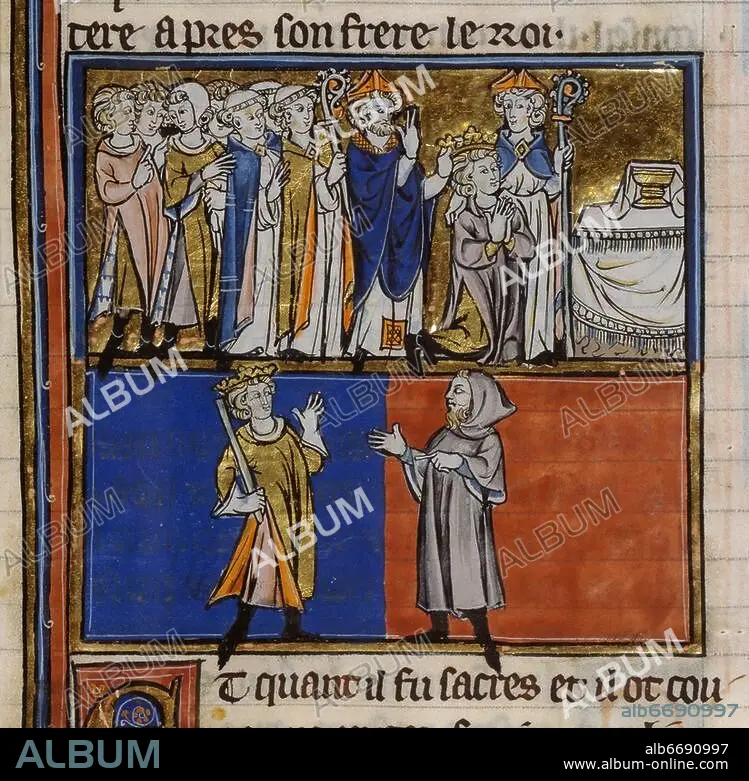 tere apres son frere le roi·
T quant il fu sacres et il ot cou
ALBUM
alb6690997
ALBUM
alb6690997
www.album-online.com